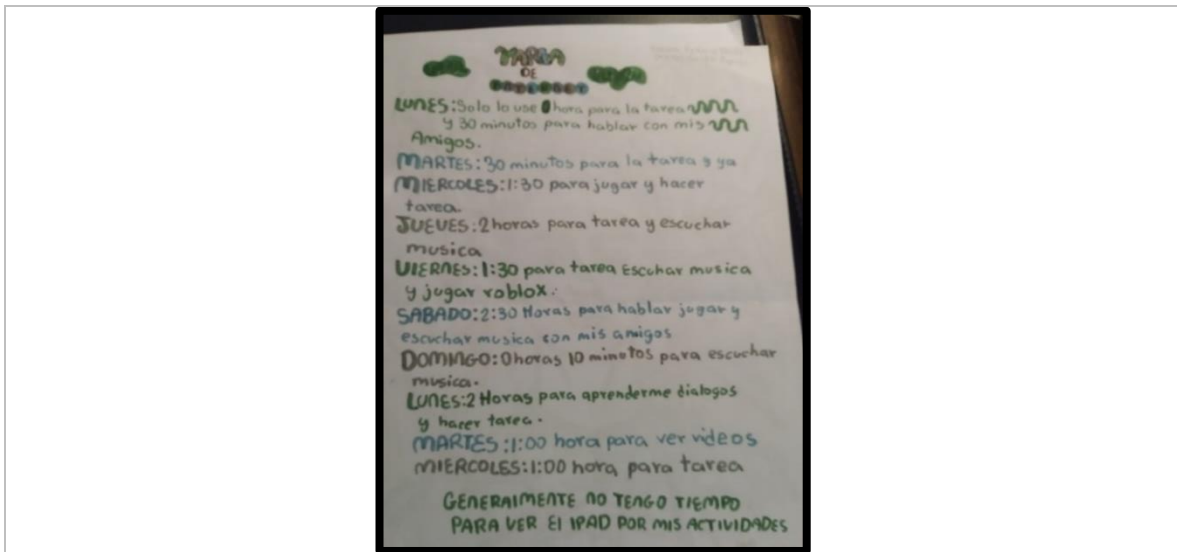 DE
INTERNET
LUNES: Solo lo use hora para la tarea
y 30 minutos para hablar con mis
Amigos.
MARTES: 30 minutos para la tarea y ya
MIERCOLES: 1:30 para jugar y hacer
tarea.
JUEVES: 2 horas para tarea y escuchar
musica
VIERNES: 1:30 para tarea Escuhar musica
y jugar roblox.
SABADO: 2:30 Horas para hablar jugar y
escuchar musica con mis amigos
DOMINGO: 0 horas 10 minutos para escuchar
musica.
LUNES: 2 Horas para aprenderme dialogos
y hacer tarea.
MARTES: 1:00 hora para ver videos
MIERCOLES: 1:00 hora para tarea
GENERALMENTE NO TENGO TIEMPO
PARA VER El IPAD POR MIS ACTIVIDADES